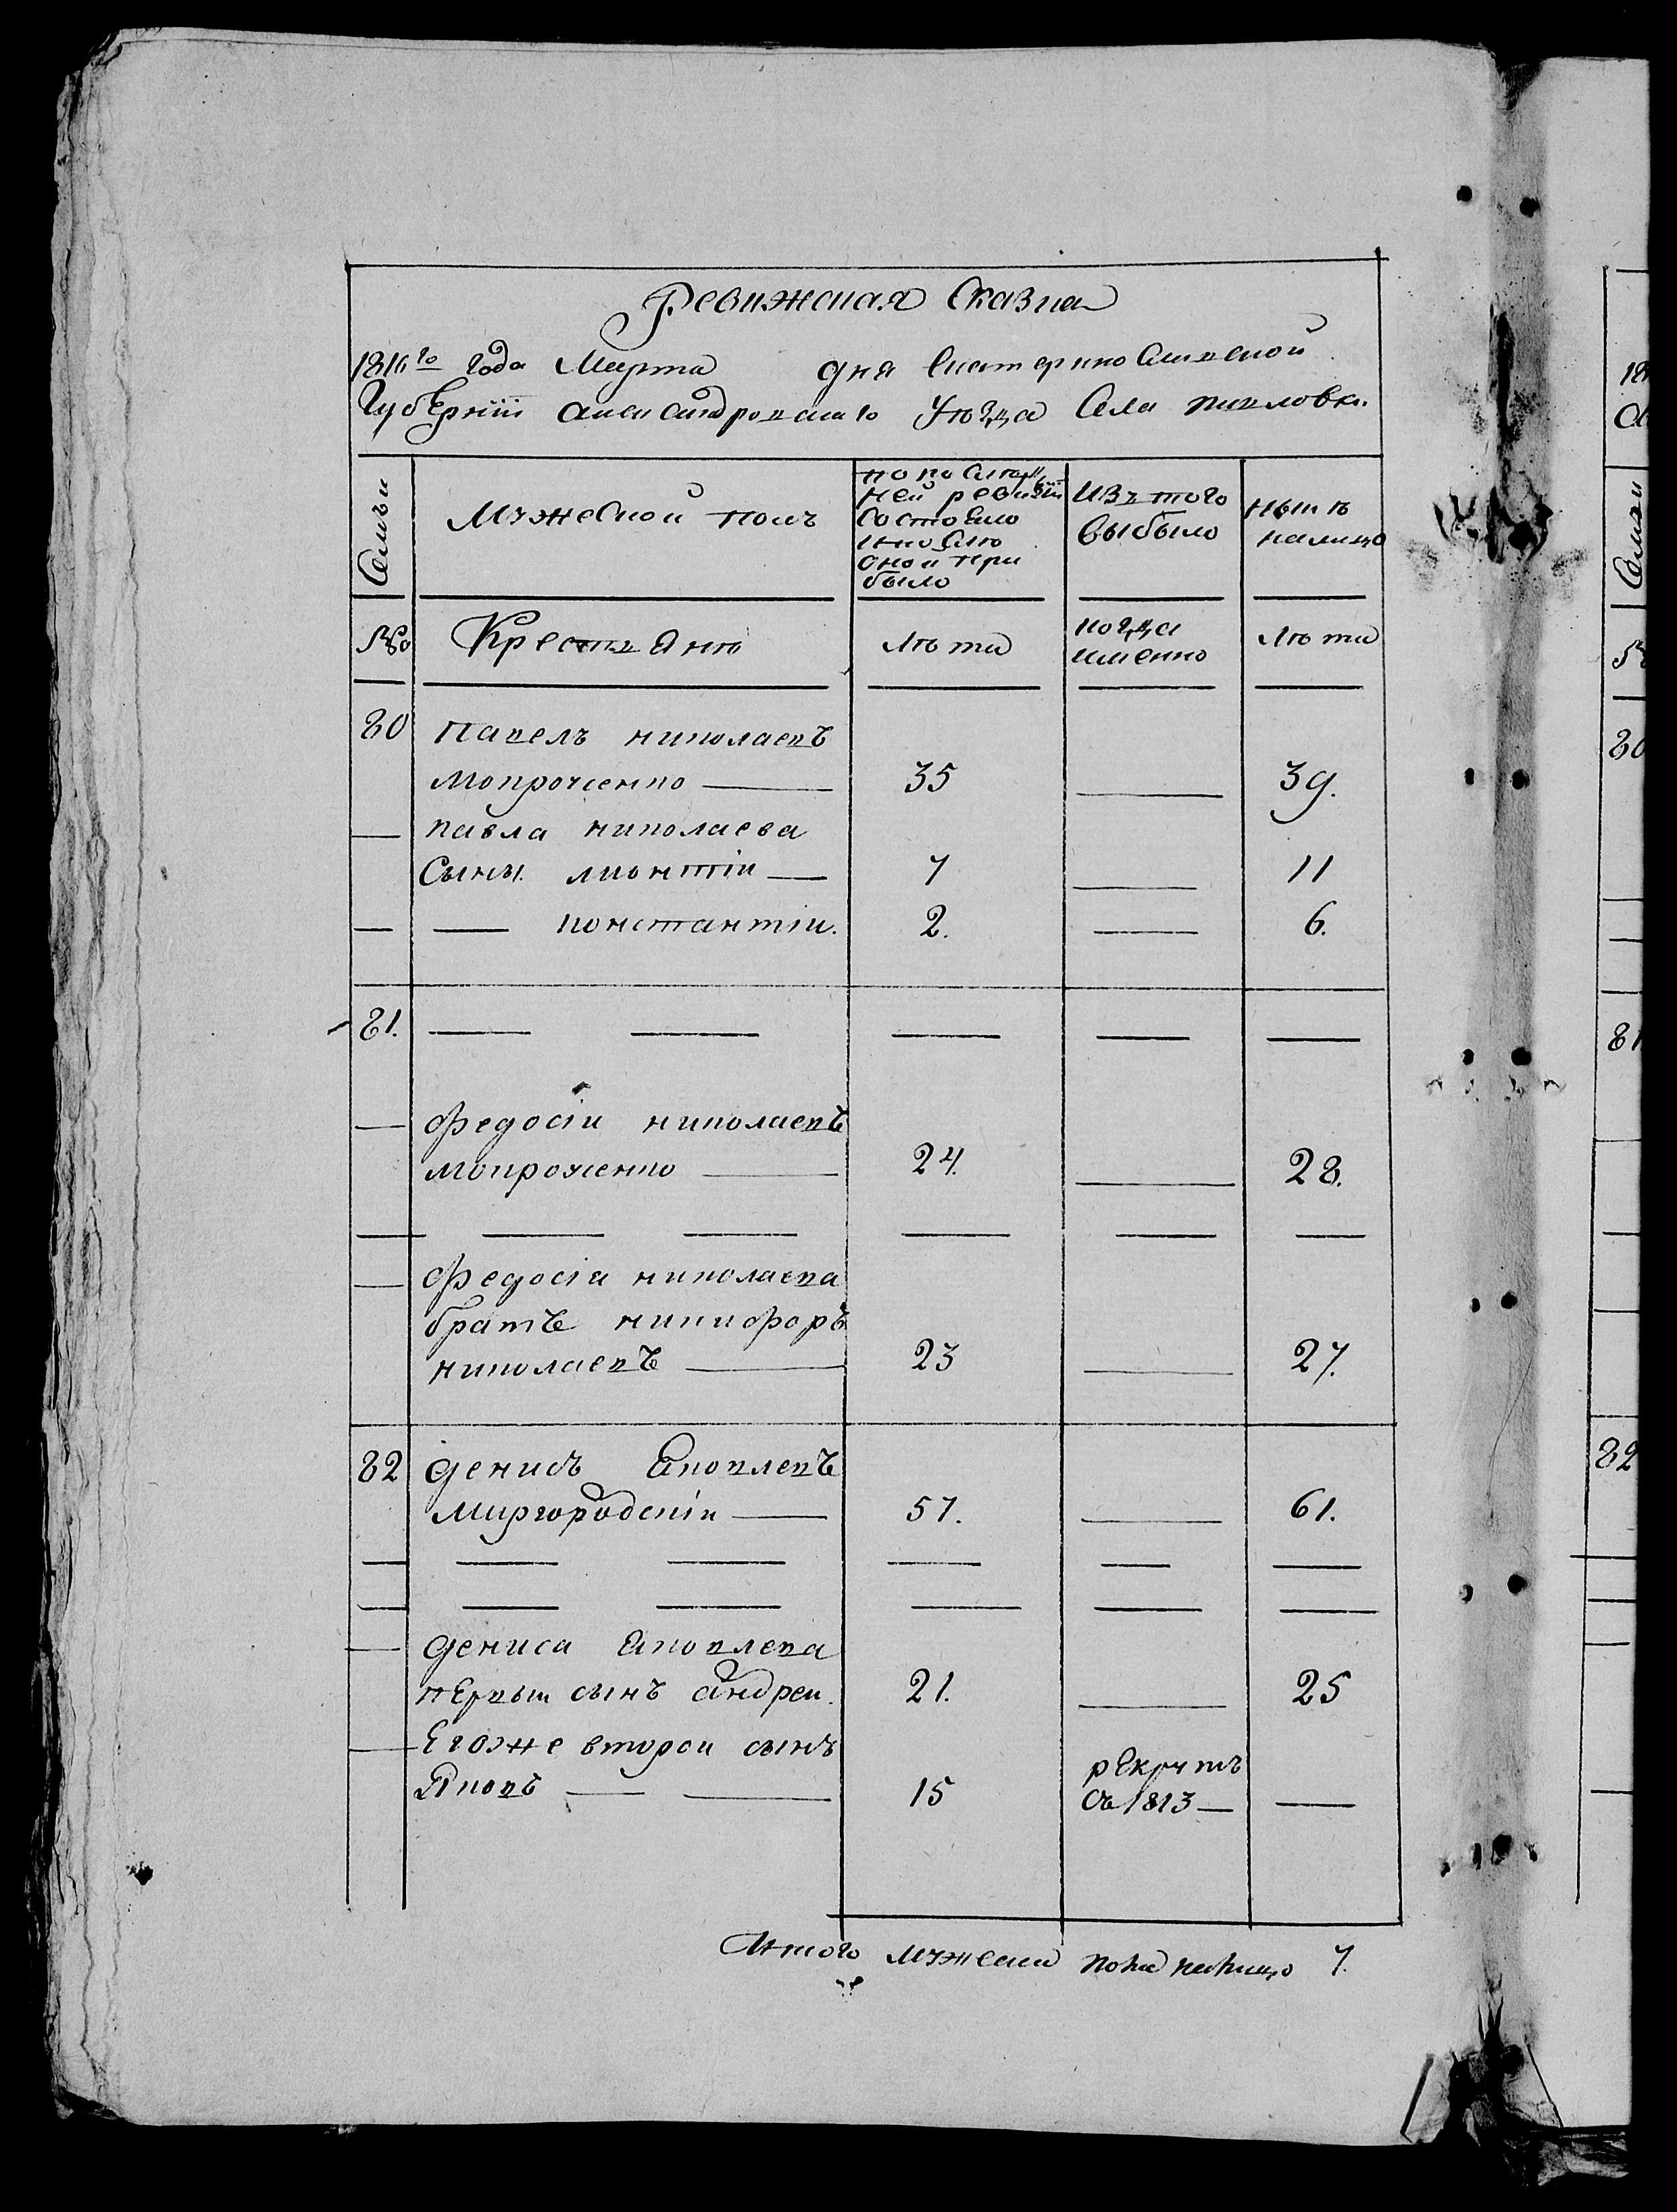 Ревижская Сказка
1816го года Марта дня Екатеринославской
Губернии александровскаго Уѣзда Села
Семьи
Мужеской полъ
по послѣд
ней ревизіи
состояло
и послѣ
оной при
было
Изъ того
выбыло
нынѣ
налицо
№
Крестьянѣ
лѣта
когда
именно
лѣта
80 Павелъ николаевъ
мокроченко — 35 — 39.
— павла николаева
Сыны. лионтіи — 7 — 11
— — константіи. 2. — 6.
81. — — — — —
— федосіи николаевъ
мокроченко — 24. — 28.
— — — — — —
— федосія николаева
братъ никифоръ
николаевъ — 23 — 27.
82 денисъ Яковлевъ
миргородскіи — 57. — 61.
— — — — — —
— — — — — —
— дениса Яковлева
первыи сынъ андреи. 21. — 25
— Егоже второи сынъ
Яковъ — — 15 рекрутъ
съ 1813 — —
Итого мужеска пола налицо 7.
18
Семьи
№
80
81
82